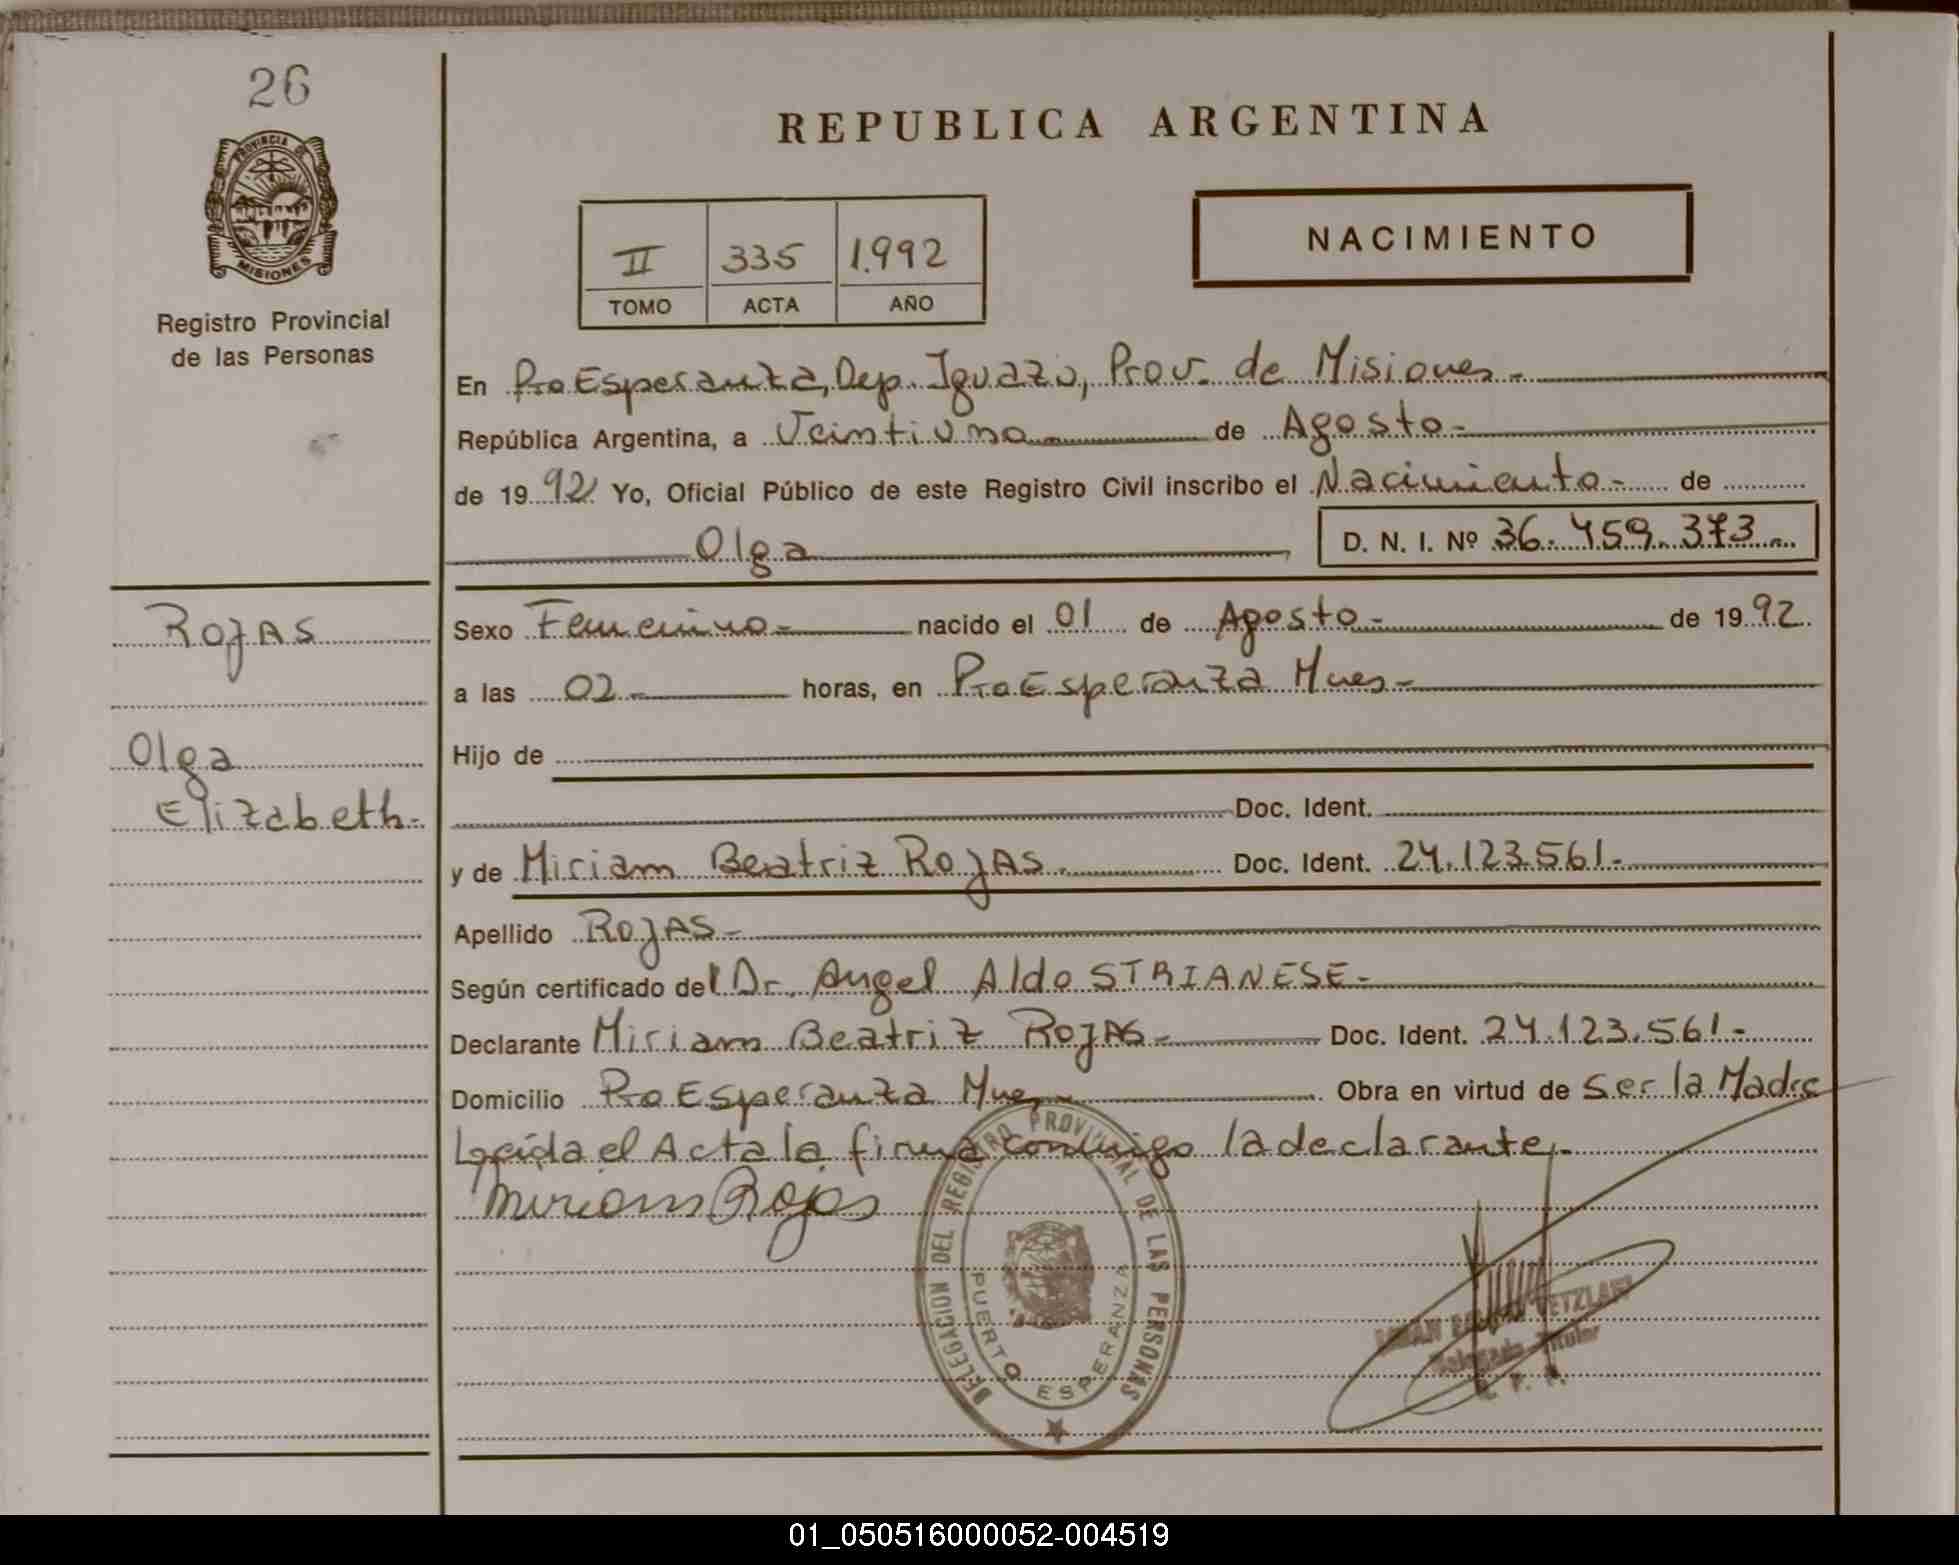 26
PROVINCIA DE
MISIONES
Registro Provincial
de las Personas
REPUBLICA ARGENTINA
II 335 1.992
TOMO ACTA AÑO
NACIMIENTO
En Pto Esperanza, Dep. Iguazú, Prov. de Misiones -
República Argentina, a Veintiuno de Agosto -
de 1992 Yo, Oficial Público de este Registro Civil inscribo el Nacimiento - de
Olga
D. N. I. Nº 36.459.373
ROJAS
Olga
Elizabeth -
Sexo Femenino - nacido el 01 de Agosto - de 1992
a las 02 - horas, en Pto Esperanza Mnes -
Hijo de
Doc. Ident.
y de Miriam Beatriz ROJAS Doc. Ident. 24.123.561 -
Apellido ROJAS -
Según certificado del Dr. Angel Aldo STRIANESE -
Declarante Miriam Beatriz ROJAS - Doc. Ident. 24.123.561 -
Domicilio Pto Esperanza Mnes Obra en virtud de Ser la Madre
Leída el Acta la firma conmigo la declarante, -
Miriam Rojas
DELEGACION DEL REGISTRO PROVINCIAL DE LAS PERSONAS
PUERTO ESPERANZA
Delegado Titular
R. P. P.
01_050516000052-004519